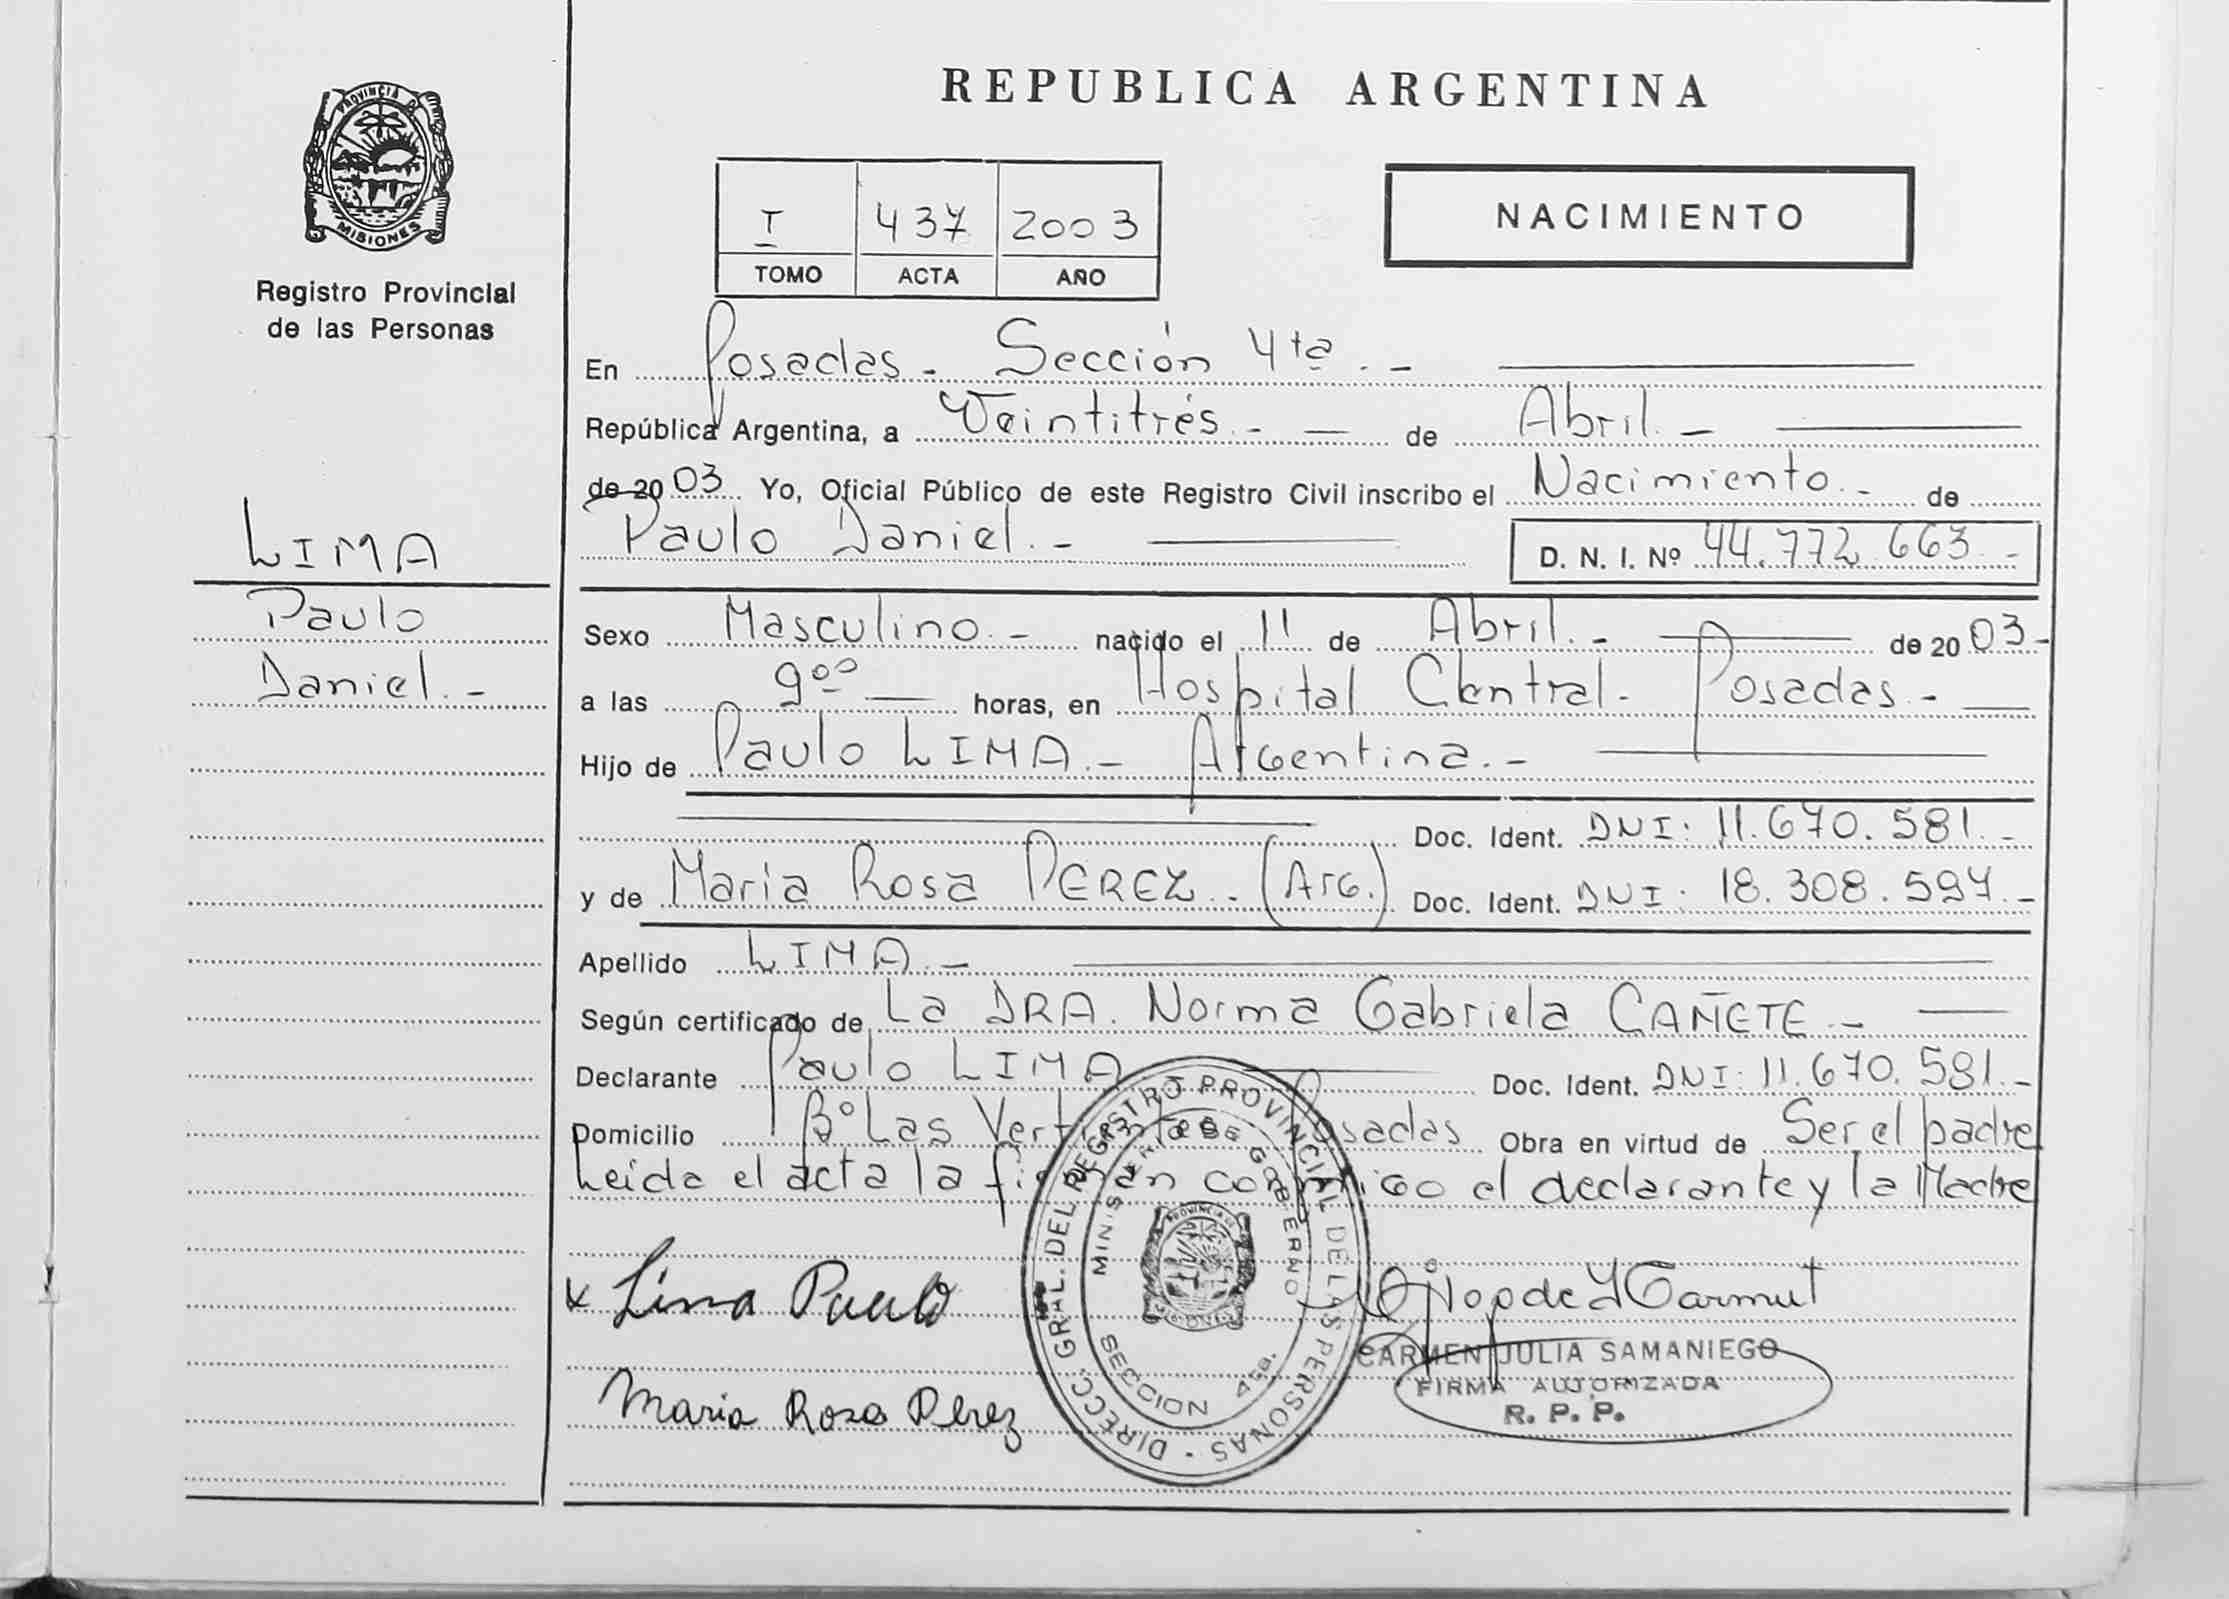 REPUBLICA ARGENTINA
PROVINCIA DE
MISIONES
Registro Provincial
de las Personas
I 437 2003
TOMO ACTA AÑO
NACIMIENTO
LIMA
Paulo
Daniel.-
En Posadas - Sección 4ta.-
República Argentina, a Veintitrés.- de Abril.-
de 2003 Yo, Oficial Público de este Registro Civil inscribo el Nacimiento.- de
Paulo Daniel.- D. N. I. Nº 44.772.663.-
Sexo Masculino.- nacido el 11 de Abril.- de 2003-
a las 9⁰⁰ horas, en Hospital Central. Posadas.-
Hijo de Paulo LIMA.- Argentina.-
Doc. Ident. DNI: 11.670.581.-
y de Maria Rosa PEREZ.- (Arg.) Doc. Ident. DNI: 18.308.597.-
Apellido LIMA.-
Según certificado de La DRA. Norma Gabriela CAÑETE.-
Declarante Paulo LIMA Doc. Ident. DNI: 11.670.581.-
Domicilio Bº Las Posadas Obra en virtud de Ser el padre
Leida el acta la firman conmigo el declarante y la Madre
x Lima Paulo
Maria Rosa Perez
DIRECC. GRAL. DEL REGISTRO PROVINCIAL DE LAS PERSONAS
MINISTERIO DE GOBIERNO
SECCION 4ta.
CARMEN JULIA SAMANIEGO
FIRMA AUTORIZADA
R. P. P.